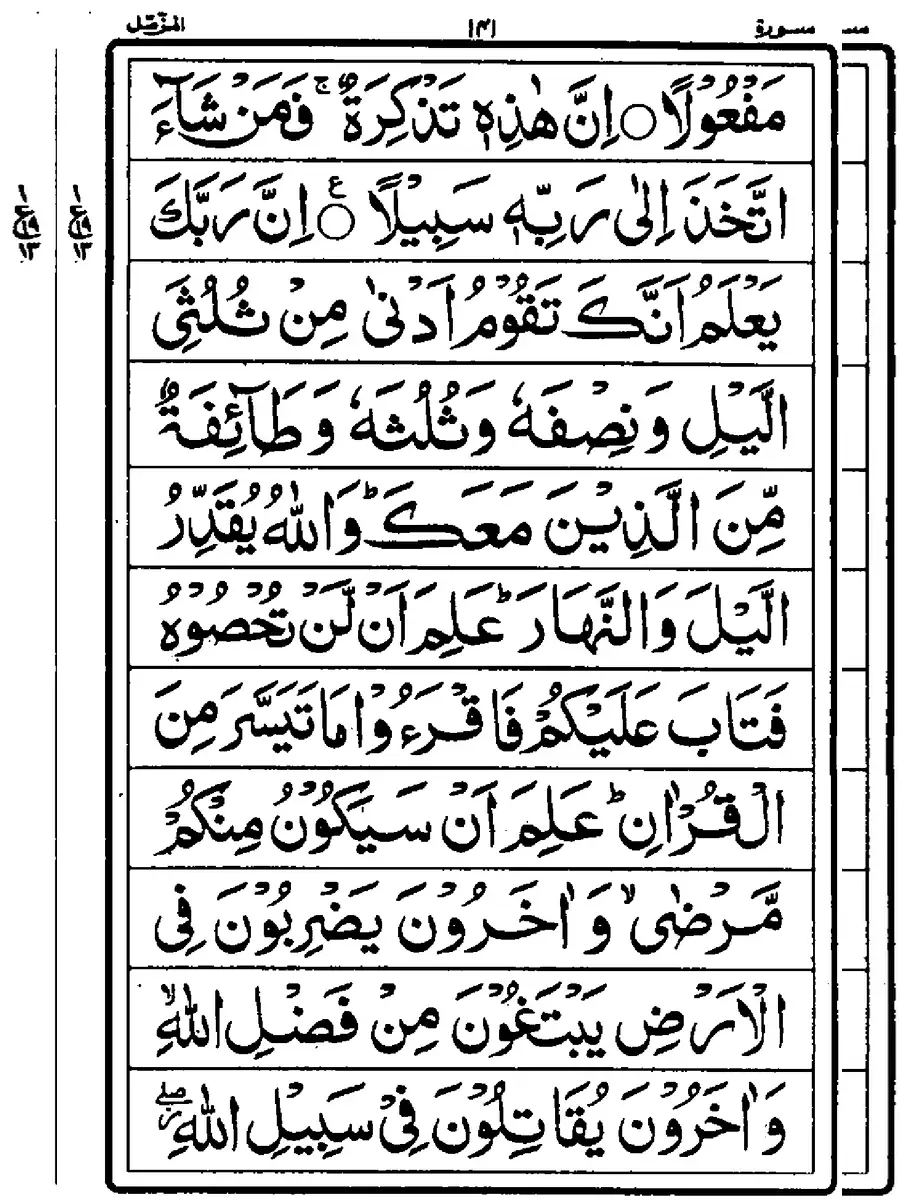 سورة ١٤١ المزّمّل
مَفْعُوْلًا ○ اِنَّ هٰذِهٖ تَذْكِرَةٌ ۚ فَمَنْ شَآءَ
اتَّخَذَ اِلٰى رَبِّهٖ سَبِيْلًا ○ ع اِنَّ رَبَّكَ
يَعْلَمُ اَنَّكَ تَقُوْمُ اَدْنٰى مِنْ ثُلُثَىِ
الَّيْلِ وَ نِصْفَهٗ وَ ثُلُثَهٗ وَ طَآئِفَةٌ
مِّنَ الَّذِيْنَ مَعَكَ ؕ وَ اللّٰهُ يُقَدِّرُ
الَّيْلَ وَ النَّهَارَ ؕ عَلِمَ اَنْ لَّنْ تُحْصُوْهُ
فَتَابَ عَلَيْكُمْ فَاقْرَءُوْا مَا تَيَسَّرَ مِنَ
الْقُرْاٰنِ ؕ عَلِمَ اَنْ سَيَكُوْنُ مِنْكُمْ
مَّرْضٰى ۙ وَ اٰخَرُوْنَ يَضْرِبُوْنَ فِى
الْاَرْضِ يَبْتَغُوْنَ مِنْ فَضْلِ اللّٰهِ ۙ
وَ اٰخَرُوْنَ يُقَاتِلُوْنَ فِىْ سَبِيْلِ اللّٰهِ ۖ